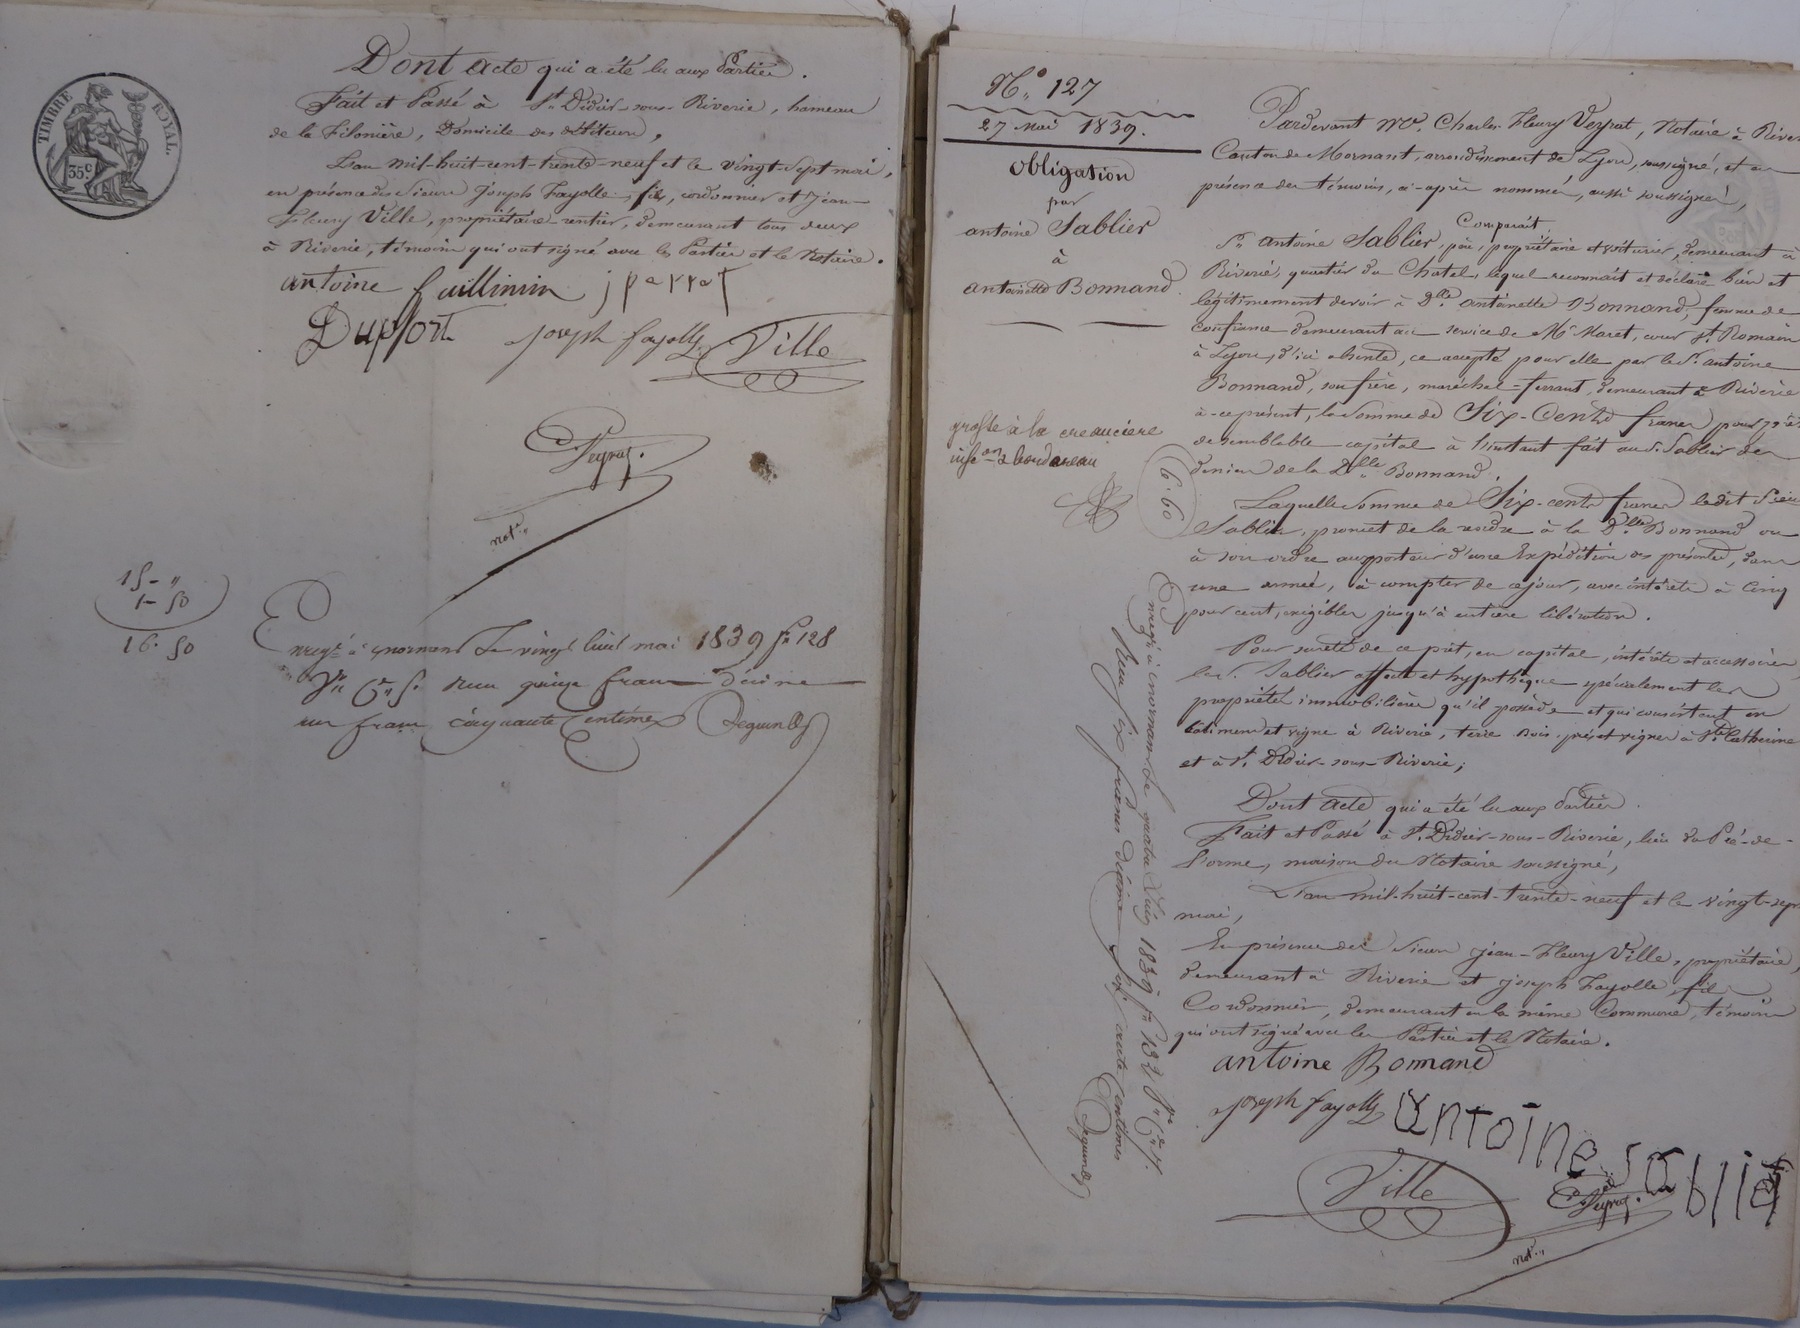 TIMBRE ROYAL.
35 c
Dont acte qui a été lu aux Parties.
Fait et Passé à St. Didier-sous-Riverie, hameau
de la Filonière, Domicile des débiteurs,
L'an mil-huit-cent-trente-neuf et le vingt-sept mai,
en présence des sieurs Joseph Fayolle fils, cordonnier et Jean-
Fleury Ville, propriétaire-rentier, demeurant tous deux
à Riverie, témoins qui ont signé avec les Parties et le Notaire.
antoine
Dupfort joseph fayolle Ville
Veyrat.
not.re
15 - "
1 - 50
16. 50
Enreg.é à Mornant le vingt huit mai 1839 f.o 128
reçu quinze francs décime
un franc cinquante centimes
N.o 127
27 Mai 1839.
Obligation
par
antoine Sablier
à
antoinette Bonnand.
grosse à la creanciere
6.60
Pardevant Me. Charles Fleury Veyrat, Notaire à River
Canton de Mornant, arrondissement de Lyon, soussigné, et en
présence des témoins, ci-après nommés, aussi soussignés,
Comparait
Sr. antoine Sablier, père, propriétaire et voiturier, demeurant à
Riverie, quartier du Chatel, lequel reconnait et déclare bien et
légitimement devoir à Dlle. antoinette Bonnand, femme de
confiance demeurant au service de Mr Maret, cour St. Romain
à Lyon, d'ici absente, ce accepté pour elle par le Sr. antoine
Bonnand, son frère, maréchal-ferrant, demeurant à Riverie
à-ce présent, la somme de Six-Cents francs pour prêt
de semblable capital à l'instant fait au S. Sablier des
deniers de la Dlle. Bonnand.
Laquelle somme de Six-cents francs ledit Sieur
Sablier, promet de la rendre à la Dlle. Bonnand ou
à son ordre au porteur d'une Expédition des présentes, dans
une année, à compter de ce jour, avec intérêts à Cinq
pour cent, exigibles jusqu'à entière libération.
Pour sureté de ce prêt, en capital, intérêts et accessoires
le S. Sablier affecte et hypothèque spécialement les
propriétés immobilières qu'il possède et qui consistent en
batiment et vigne à Riverie, terre bois, prés et vignes à Ste. Catherine
et à St. Didier-sous-Riverie;
Dont acte qui a été lu aux Parties.
Fait et Passé à St. Didier-sous-Riverie, lieu du Pié-de-
l'orme, maison du Notaire soussigné,
L'an mil-huit-cent-trente-neuf et le vingt-sept
mai,
En présence des sieurs Jean-Fleury Ville, propriétaire,
demeurant à Riverie et Joseph Fayolle fils
Cordonnier, demeurant en la même Commune, témoins
qui ont signé avec les Parties et le Notaire.
antoine Bonnand
joseph fayolle antoine sablie
Ville
Veyrat.
not.re
Enregé à Mornant le quatre Juin 1839 f.o 132
Reçu six francs décime soixante centimes